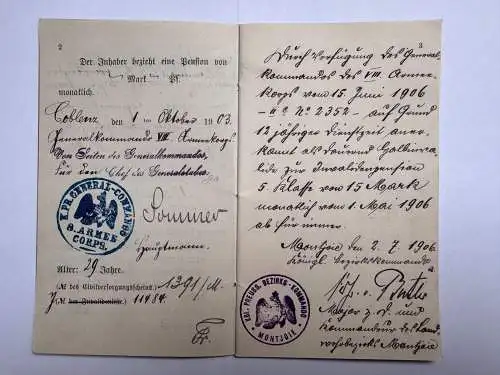 2
Der Inhaber bezieht eine Pension von
Mark Pf.
monatlich.
Coblenz, den 1ten Oktober 1903.
Generalkommando VIII. Armeekorps
Von Seiten des Generalkommandos,
Für den Chef des Generalstabes
K. PR. GENERAL-COMMANDO
8. ARMEE
CORPS.
Sommer
Hauptmann.
Alter: 29 Jahre.
(№ des Civilversorgungsscheins: 1391/M.
J (№ des Invalidenliste: 11484.
Fr.
3
Durch Verfügung des General-
kommandos des VIII. Armee-
korps vom 15. Juni 1906
- IIc No 2352 - auf Grund
12 jähriger Dienstzeit aner-
kannt als dauernd Halbinva-
lide zur Invalidenpension
5. Klasse von 15 Mark
monatlich vom 1. Mai 1906
ab für immer.
Montjoie den 2. 7. 1906.
Königl. Bezirkskommando
KGL. PREUSS. BEZIRKS-COMMANDO
MONTJOIE
Major z. D. und
Kommandeur des Land-
wehrbezirks Montjoie